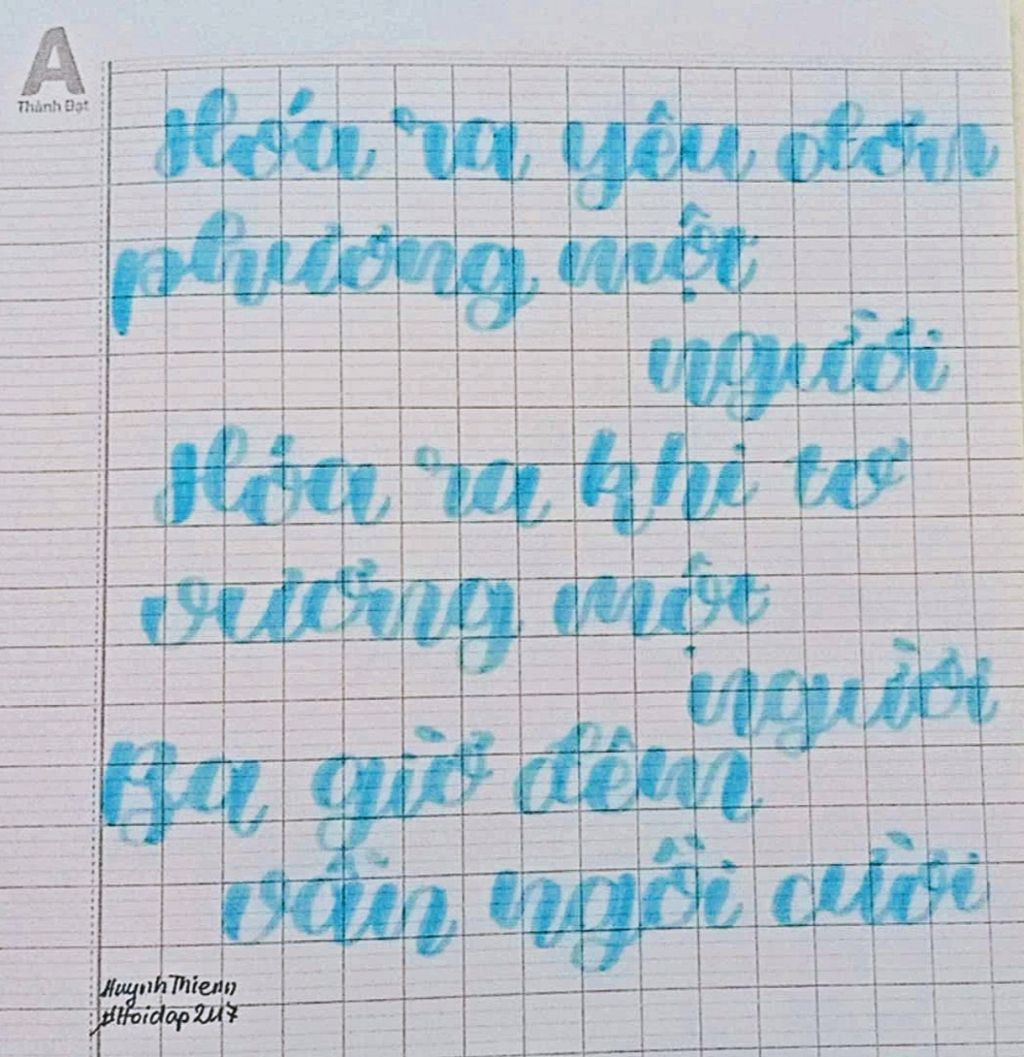 A
Thành Đạt
Hóa ra yêu đơn
phương một
người
Hóa ra khi tơ
vương một
người
Ba giờ đêm
vẫn ngồi cười
HuynhThienn
#Hoidap247